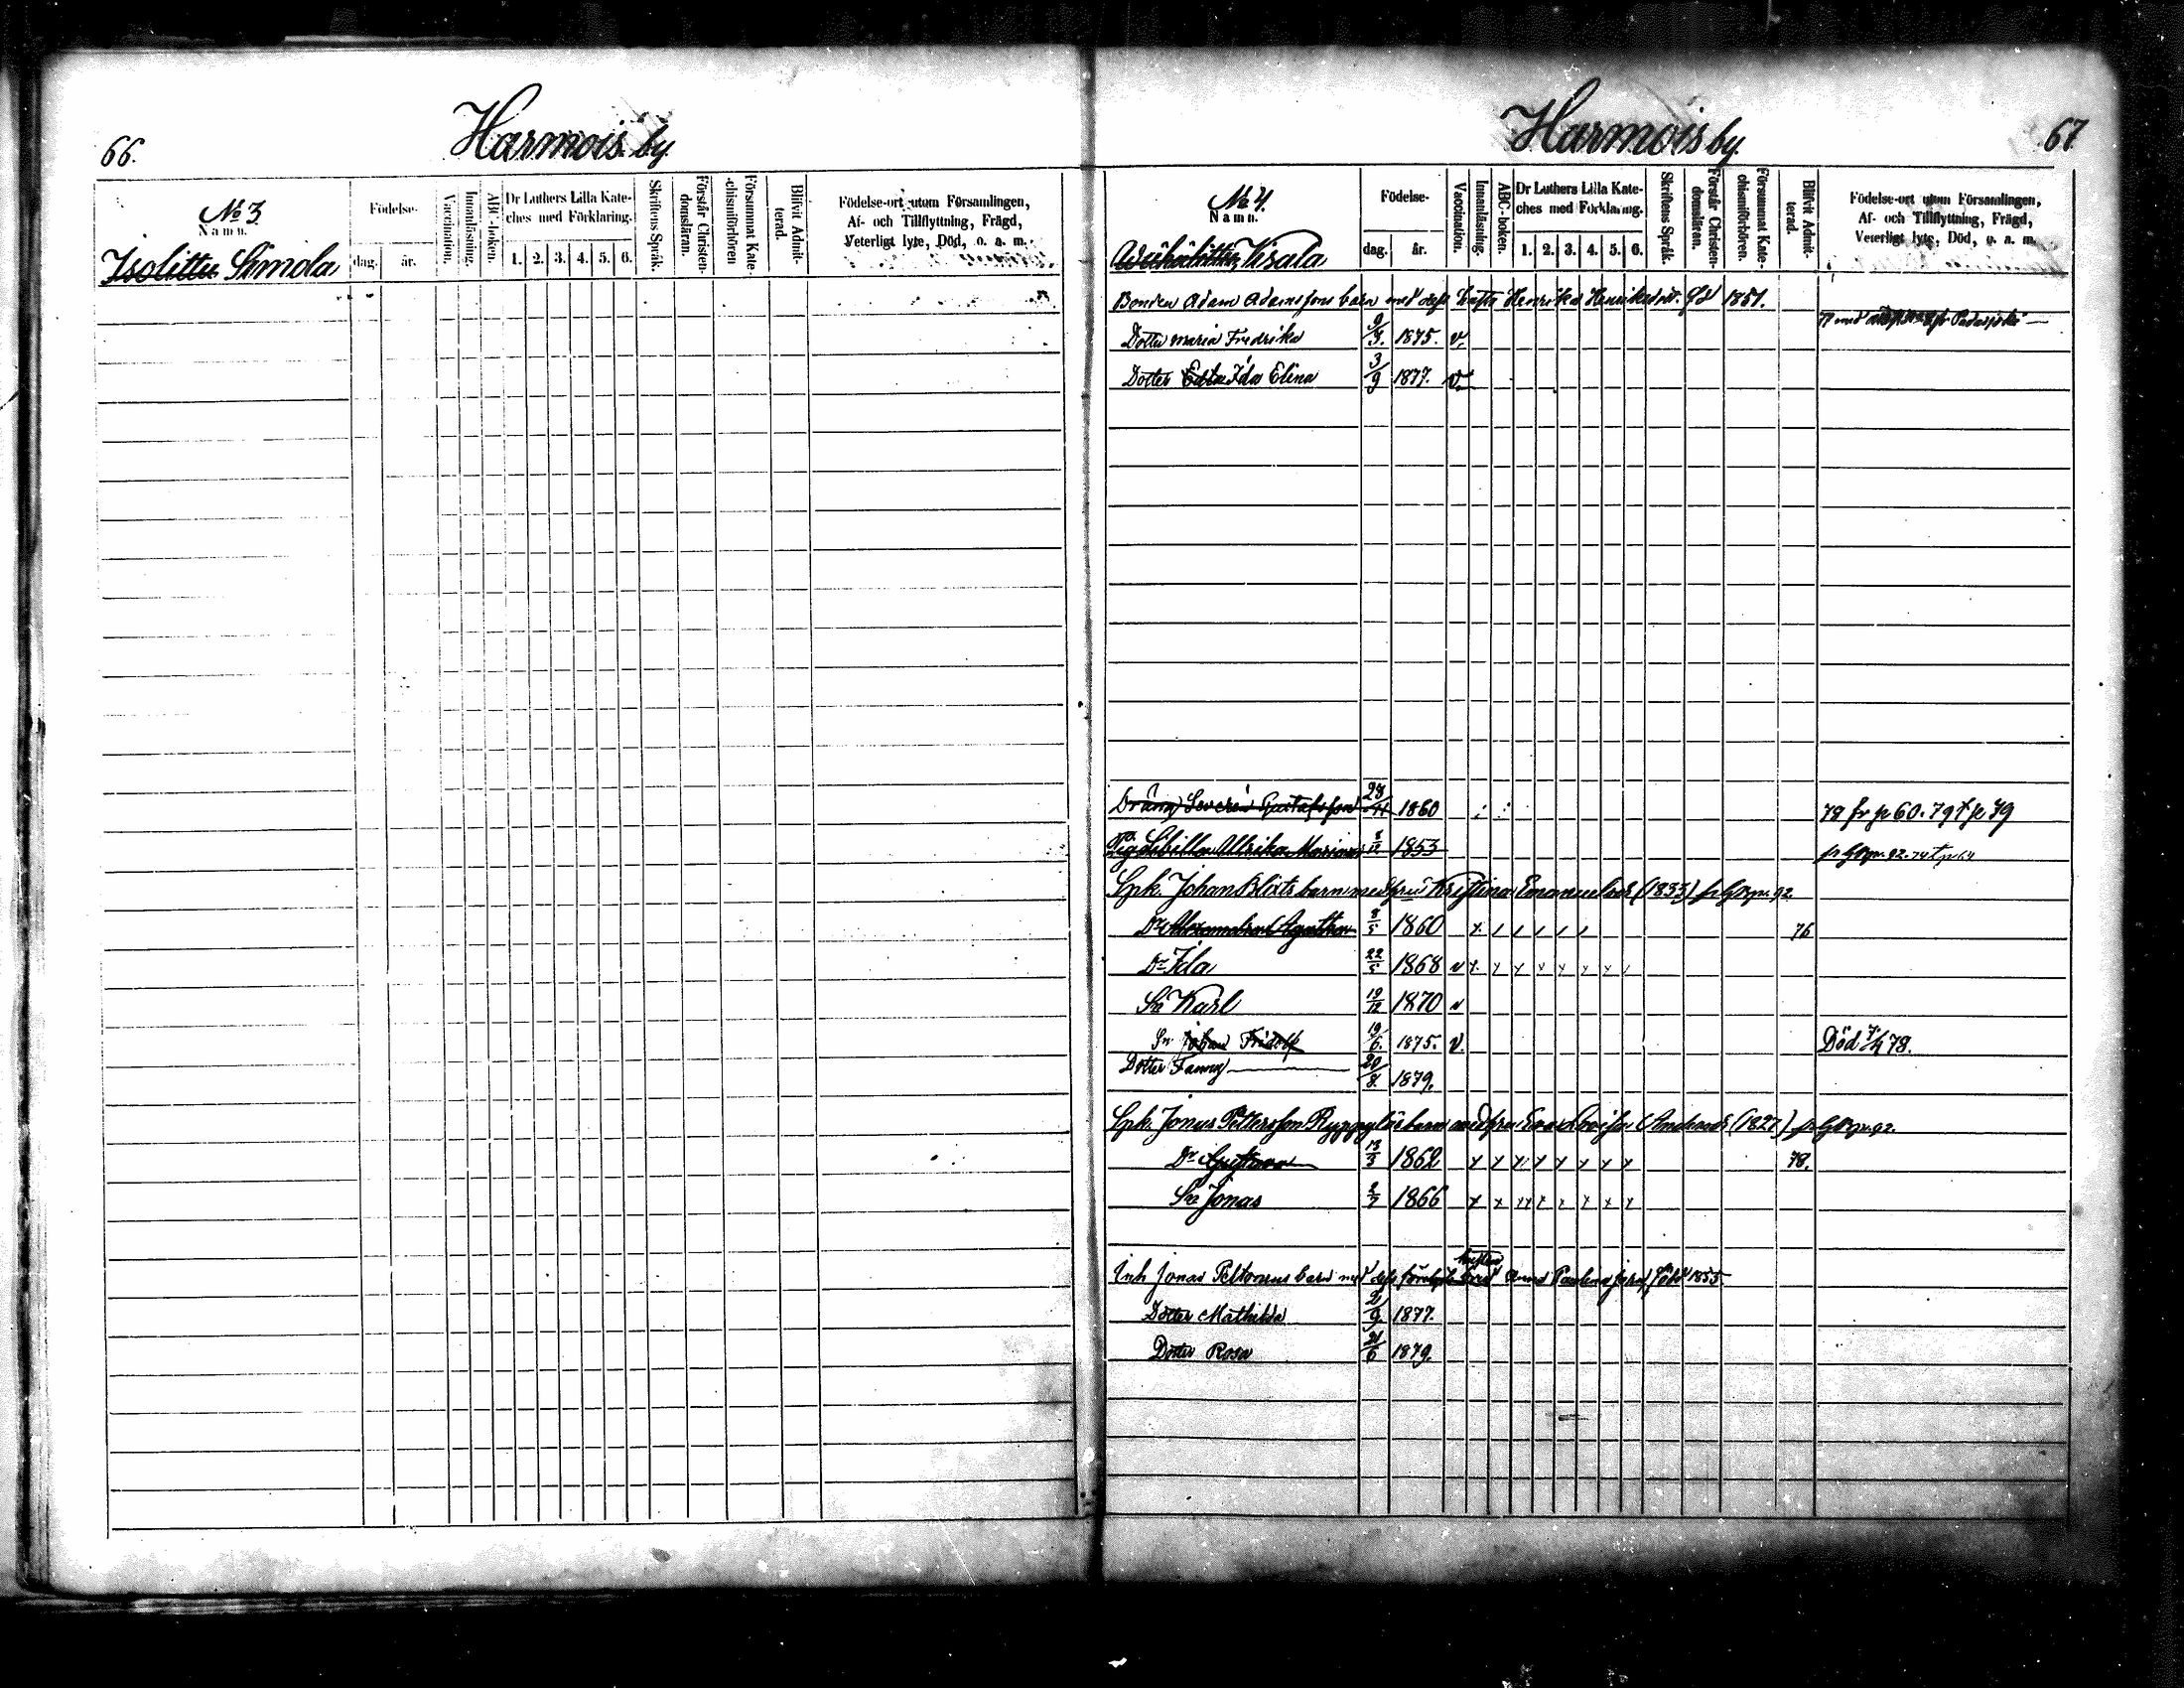 66.
Harmois by
No 3
Namn.
Isolittu Simola
Födelse-
dag.
år.
Vaccination.
Innanläsning.
ABC-boken.
Dr Luthers Lilla Kate-
ches med Förklaring.
1. 2. 3. 4. 5. 6.
Skriftens Språk.
Förstår Christen-
domsläran.
Försummat Kate-
chismiförhören
Blifvit Admit-
terad.
Födelse-ort utom Församlingen,
Af- och Tillflyttning, Frägd,
Veterligt lyte, Död, o. a. m.
Harmois by
67
No 4.
Namn.
Kisala
Födelse-
dag.
år.
Vaccination.
Innanläsning.
ABC-boken.
Dr Luthers Lilla Kate-
ches med Förklaring.
1. 2. 3. 4. 5. 6.
Skriftens Språk.
Förstår Christen-
domsläran.
Försummat Kate-
chismiförhören.
Blifvit Admit-
terad.
Födelse-ort utom Församlingen,
Af- och Tillflyttning, Frägd,
Veterligt lyte, Död, o. a. m.
Bonden Adam Adamssons barn med dess hustru Henrika Henriksdott. född 1851.
77 med fr Padasjoki
Dotter Maria Fredrika 9/3. 1875. v.
Dotter Edla Ida Elina 3/9 1877. v.
Dräng Severin Gustafsson 28/11 1860 78 fr p 60. 79 t p 79
Pig. Sibilla Ullrika Maria 8/12 1853
Spk. Johan Blixts barn med fru Kristina Emanuelsdr (1833)
Dr Alexandra Agatha 8/5 1860 76
Dr Ida 22/5 1868 v
Sn Karl 19/12 1870 v
Sn Johan Fridolf 19/6. 1875. v. Död 78.
Dotter Fanny 20/8. 1879.
Spk. Jonas Pettersson barn med fru Eva Lovisa Andersdr (1827)
Dr Gustava 13/3 1862 78.
Sn Jonas 2/7 1866
Inh Jonas Peltomas barn med dess hustru Anna Paulina född 1855
Dotter Mathilda 2/9. 1877.
Dotter Rosa 21/6 1879.